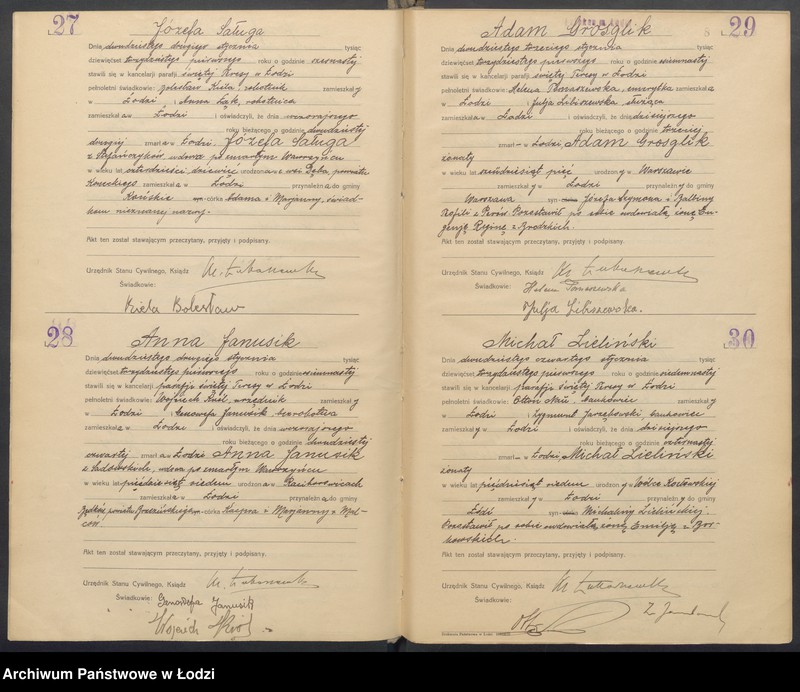 27
Józefa Saługa
Dnia dwudziestego drugiego stycznia tysiąc
dziewięćset trzydziestego pierwszego roku o godzinie szesnastej
stawili się w kancelarji parafji świętej Teresy w Łodzi
pełnoletni świadkowie: Bolesław Kieta, robotnik zamieszkały
w Łodzi i Anna Żak, robotnica
zamieszkała w Łodzi i oświadczyli, że dnia wczorajszego
roku bieżącego o godzinie dwudziestej
drugiej zmarła w Łodzi, Józefa Saługa
z Stefańczyków, wdowa po zmarłym Wawrzyńcu
w wieku lat czterdzieści dziewięć urodzona we wsi Dęba, powiatu
Koneckiego zamieszkała w Łodzi przynależna do gminy
Końskie córka Adama i Marjanny, świad-
kom nieznanej nazwy.
Akt ten został stawającym przeczytany, przyjęty i podpisany.
Urzędnik Stanu Cywilnego, Ksiądz
Świadkowie:
Kieta Bolesław
28
Anna Janusik
Dnia dwudziestego drugiego stycznia tysiąc
dziewięćset trzydziestego pierwszego roku o godzinie siedmnastej
stawili się w kancelarji parafji świętej Teresy w Łodzi
pełnoletni świadkowie: Wojciech Król, urzędnik zamieszkały
w Łodzi i Genowefa Janusik, bez rolnictwa
zamieszkała w Łodzi i oświadczyli, że dnia wczorajszego
roku bieżącego o godzinie dwudziestej
czwartej zmarła w Łodzi Anna Janusik
z Sadowskich, wdowa po zmarłym Wawrzyńcu
w wieku lat pięćdziesiąt siedem urodzona w
zamieszkała w Łodzi przynależna do gminy
powiatu Brzezińskiego córka Kacpra i Marjanny z Mal-
Akt ten został stawającym przeczytany, przyjęty i podpisany.
Urzędnik Stanu Cywilnego, Ksiądz
Świadkowie: Genowefa Janusik
Wojciech Król
29
Adam Grosglik
Dnia dwudziestego trzeciego stycznia tysiąc
dziewięćset trzydziestego pierwszego roku o godzinie
stawili się w kancelarji parafji świętej Teresy w Łodzi
pełnoletni świadkowie: Helena Tomaszewska, emerytka zamieszkała
w Łodzi i Julja Libiszewska, służąca
zamieszkała w Łodzi i oświadczyli, że dnia dzisiejszego
roku bieżącego o godzinie trzeciej
zmarł w Łodzi, Adam Grosglik
żonaty
w wieku lat sześćdziesiąt pięć urodzony w Warszawie
zamieszkały w Łodzi przynależny do gminy
Warszawa syn Józefa Szymona i Balbiny
Pozostawił po sobie owdowiałą żonę Eu-
genję Reginę z Brodzkich.
Akt ten został stawającym przeczytany, przyjęty i podpisany.
Urzędnik Stanu Cywilnego, Ksiądz
Świadkowie: Helena Tomaszewska
Julja Libiszewska.
30
Michał Zieliński
Dnia dwudziestego czwartego stycznia tysiąc
dziewięćset trzydziestego pierwszego roku o godzinie siedemnastej
stawili się w kancelarji parafji świętej Teresy w Łodzi
pełnoletni świadkowie: zamieszkały
w Łodzi i Zygmunt Jarzębowski,
zamieszkały w Łodzi i oświadczyli, że dnia dzisiejszego
roku bieżącego o godzinie czternastej
zmarł w Łodzi, Michał Zieliński
żonaty
w wieku lat pięćdziesiąt siedem urodzony w
zamieszkały w Łodzi przynależny do gminy
Łódź syn Michaliny Zielińskiej.
Pozostawił po sobie owdowiałą żonę Emilję z Bor-
kowskich.
Akt ten został stawającym przeczytany, przyjęty i podpisany.
Urzędnik Stanu Cywilnego, Ksiądz
Świadkowie:
Archiwum Państwowe w Łodzi